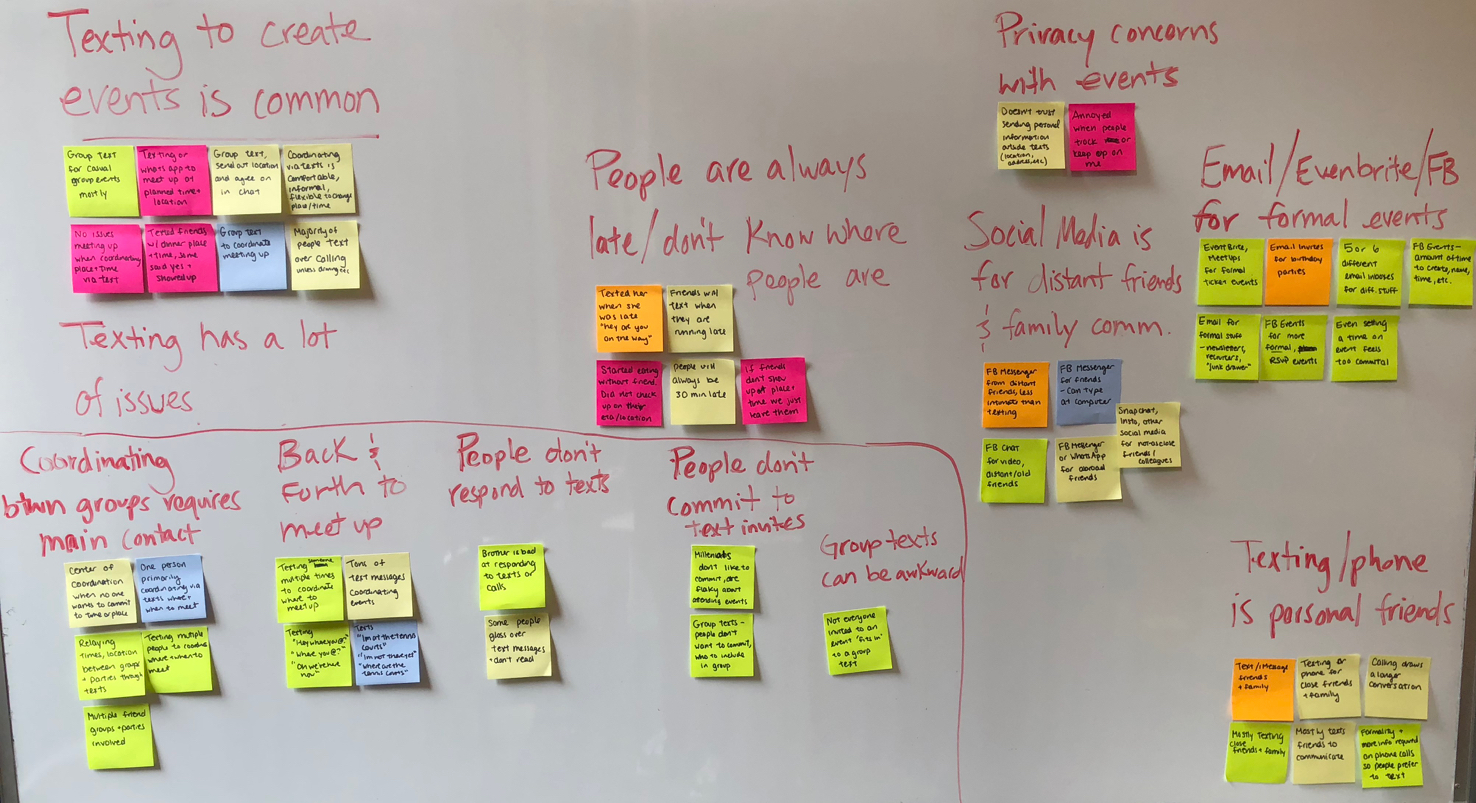 Texting to create
events is common
Group text
for casual
group events
mostly
Texting or
whatsapp to
meet up at
planned time +
location
Group text,
send out location
and agree on
in chat
Coordinating
via texts is
comfortable,
informal,
flexible to change
place/time
No issues
meeting up
when coordinating
place + time
via text
Texted friends
w/ dinner place
+ time, some
said yes +
showed up
Group text
to coordinate
meeting up
Majority of
people text
over calling
unless driving etc
Texting has a lot
of issues
Coordinating
btwn groups requires
main contact
Center of
coordination
when no one
wants to commit
to time or place
One person
primarily
coordinating via
texts where +
when to meet
Relaying
times, location
between groups
+ parties through
texts
Texting multiple
people to coordinate
where + when to
meet
Multiple friend
groups + parties
involved
Back &
Forth to
meet up
Texting
multiple times
to coordinate
where to
meet up
Tons of
text messages
coordinating
events
Texting
"Hey where you @"
"Where you @?"
"Oh we're here
now"
Texts
"Im at the tennis
courts"
"Im not there yet"
"Where are the
tennis courts"
People don't
respond to texts
Brother is bad
at responding
to texts or
calls
Some people
gloss over
text messages
+ don't read
People don't
commit to
text invites
Millenials
don't like to
commit, are
flaky about
attending events
Group texts -
people don't
want to commit,
who to include
in group
Group texts
can be awkward
Not everyone
invited to an
event "fits in"
to a group
text
People are always
late/don't know where
people are
Texted her
when she
was late
"hey are you
on the way"
Friends will
text when
they are
running late
Started eating
without friend.
Did not check
up on their
eta/location
People will
always be
30 min late
If friends
don't show
up at place +
time we just
leave them
Privacy concerns
with events
Doesn't trust
sending personal
information
outside texts
(location,
address, etc)
Annoyed
when people
track or
keep up on
me
Social Media is
for distant friends
& family comm.
FB Messenger
from distant
friends, less
intimate than
texting
FB Messenger
for friends
- can type
at computer
Snapchat,
Insta, other
social media
for not as close
friends/
colleagues
FB Chat
for video,
distant/old
friends
FB Messenger
or WhatsApp
for abroad
friends
Email/Evenbrite/FB
for formal events
EventBrite,
Meetups
for formal
ticket events
Email invites
for birthday
parties
5 or 6
different
email inboxes
for diff. stuff
FB Events -
amount of time
to create, name,
time, etc.
Email for
formal stuff
- newsletters,
recruiters,
"junk drawer"
FB Events
for more
formal,
RSVP events
Even setting
a time on
event feels
too committal
Texting/phone
is personal friends
Text/iMessage
friends
+ family
Texting or
phone for
close friends
+ family
Calling draws
a longer
conversation
Mostly Texting
close
friends + family
Mostly texts
friends to
communicate
Formality +
more info required
on phone calls
so people prefer
to text